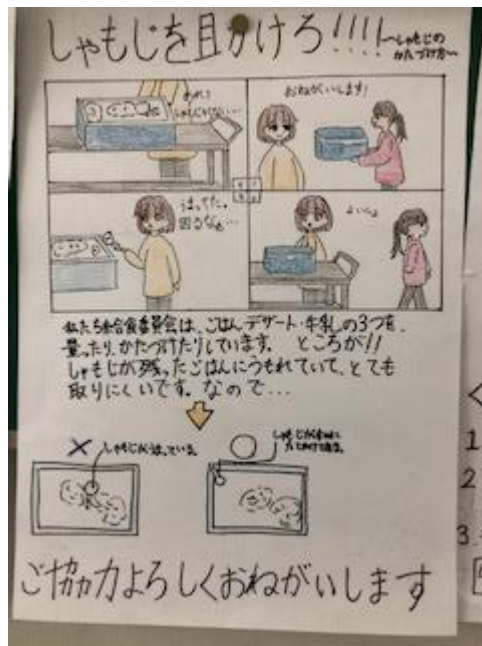 しゃもじを助けろ!!!!
〜しゃもじの
かたづけ方〜
あれ!
しゃもじがない…
おねがいします!
困るなぁ…
よいしょ
私たち給食委員会は、ごはん・デザート・牛乳の3つを、
量ったり、かたづけたりしています。 ところが!!
しゃもじが残ったごはんにうもれていて、とても
取りにくいです。なので…
しゃもじがうまっている。
しゃもじが
ご協力よろしくおねがいします
1
2
3.